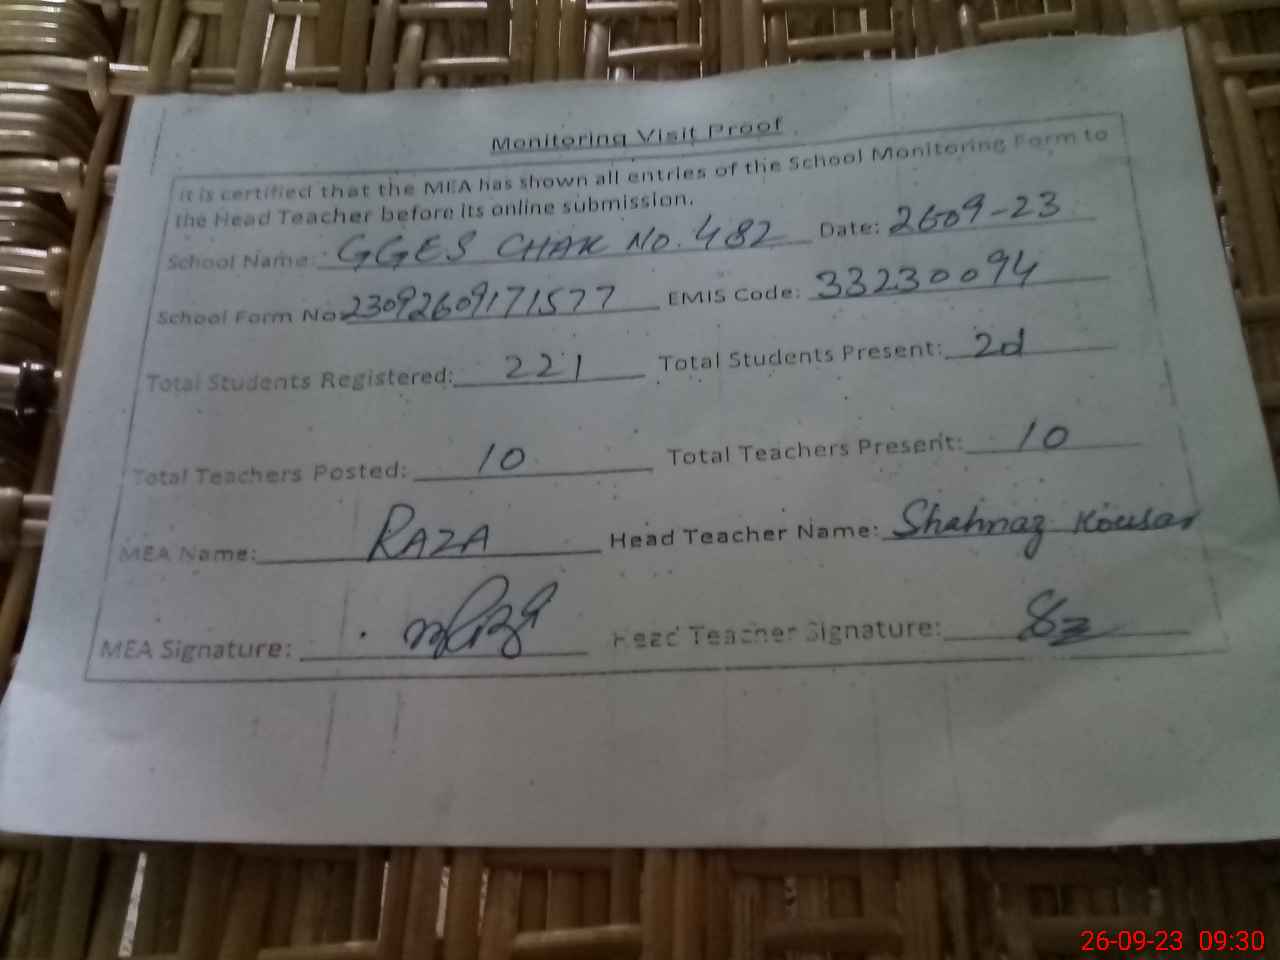 Monitoring Visit Proof
It is certified that the MEA has shown all entries of the School Monitoring Form to
the Head Teacher before its online submission.
School Name: GGES CHAK No. 482 Date: 2609-23
School Form No: 23092609171577 EMIS Code: 33230094
Total Students Registered: 221 Total Students Present:
Total Teachers Posted: 10 Total Teachers Present: 10
MEA Name: RAZA Head Teacher Name: Shahnaz Kousar
MEA Signature: Head Teacher Signature:
26-09-23 09:30